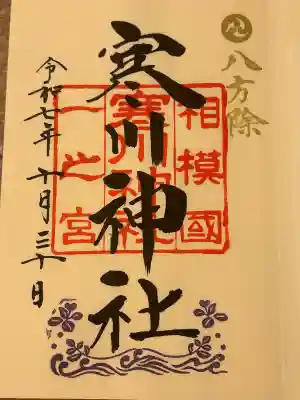 八方除
寒川神社
相模國
寒川神社
一之宮
令和七年十月三十日